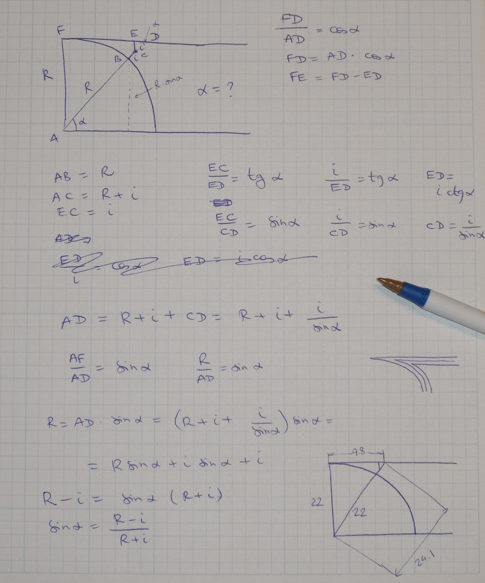 F
E
D
i
i
B
C
R
R
R sinα
α = ?
A
α
FD/AD = cosα
FD = AD · cosα
FE = FD - ED
AB = R
AC = R + i
EC = i
EC/ED = tgα
i/ED = tgα
ED = i ctgα
EC/CD = sinα
i/CD = sinα
CD = i/sinα
AD = R + i + CD = R + i + i/sinα
AF/AD = sinα
R/AD = sinα
R = AD · sinα = (R + i + i/sinα) sinα =
= R sinα + i sinα + i
R - i = sinα (R + i)
sinα = R - i/R + i
9.8
22
22
24.1